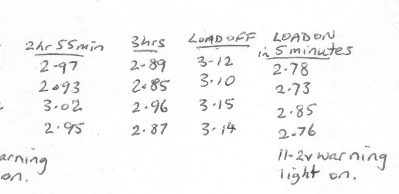 2hr 55min 3hrs LOAD OFF LOAD ON
in 5 minutes
2.97 2.89 3.12 2.78
2.93 2.85 3.10 2.73
3.02 2.96 3.15 2.85
2.95 2.87 3.14 2.76
arning 11.2v warning
on. light on.